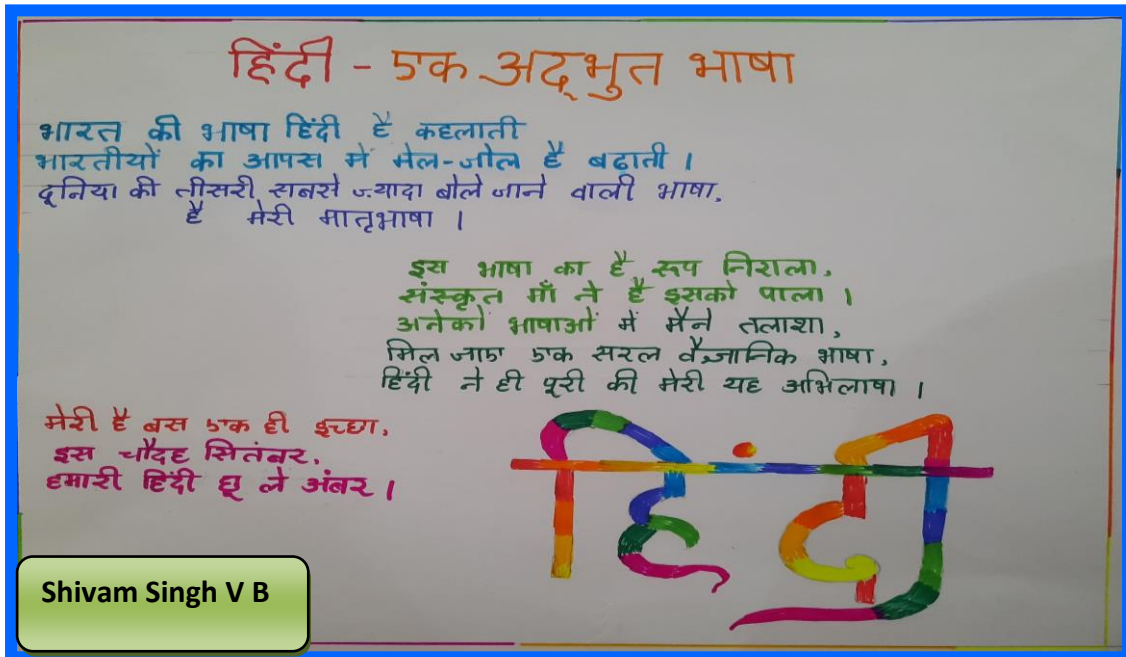 हिंदी - एक अद्‌भुत भाषा
भारत की भाषा हिंदी है कहलाती
भारतीयों का आपस में मेल-जोल है बढ़ाती ।
दूनिया की तीसरी सबसे ज्यादा बोले जाने वाली भाषा,
है मेरी मातृभाषा ।
इस भाषा का है रूप निराला,
संस्कृत माँ ने है इसको पाला ।
अनेकों भाषाओं में मैने तलाशा,
मिल जाए एक सरल वैज्ञानिक भाषा,
हिंदी ने ही पूरी की मेरी यह अभिलाषा ।
मेरी है बस एक ही इच्छा,
इस चौदह सितंबर,
हमारी हिंदी छू ले अंबर ।
हिंदी
Shivam Singh V B